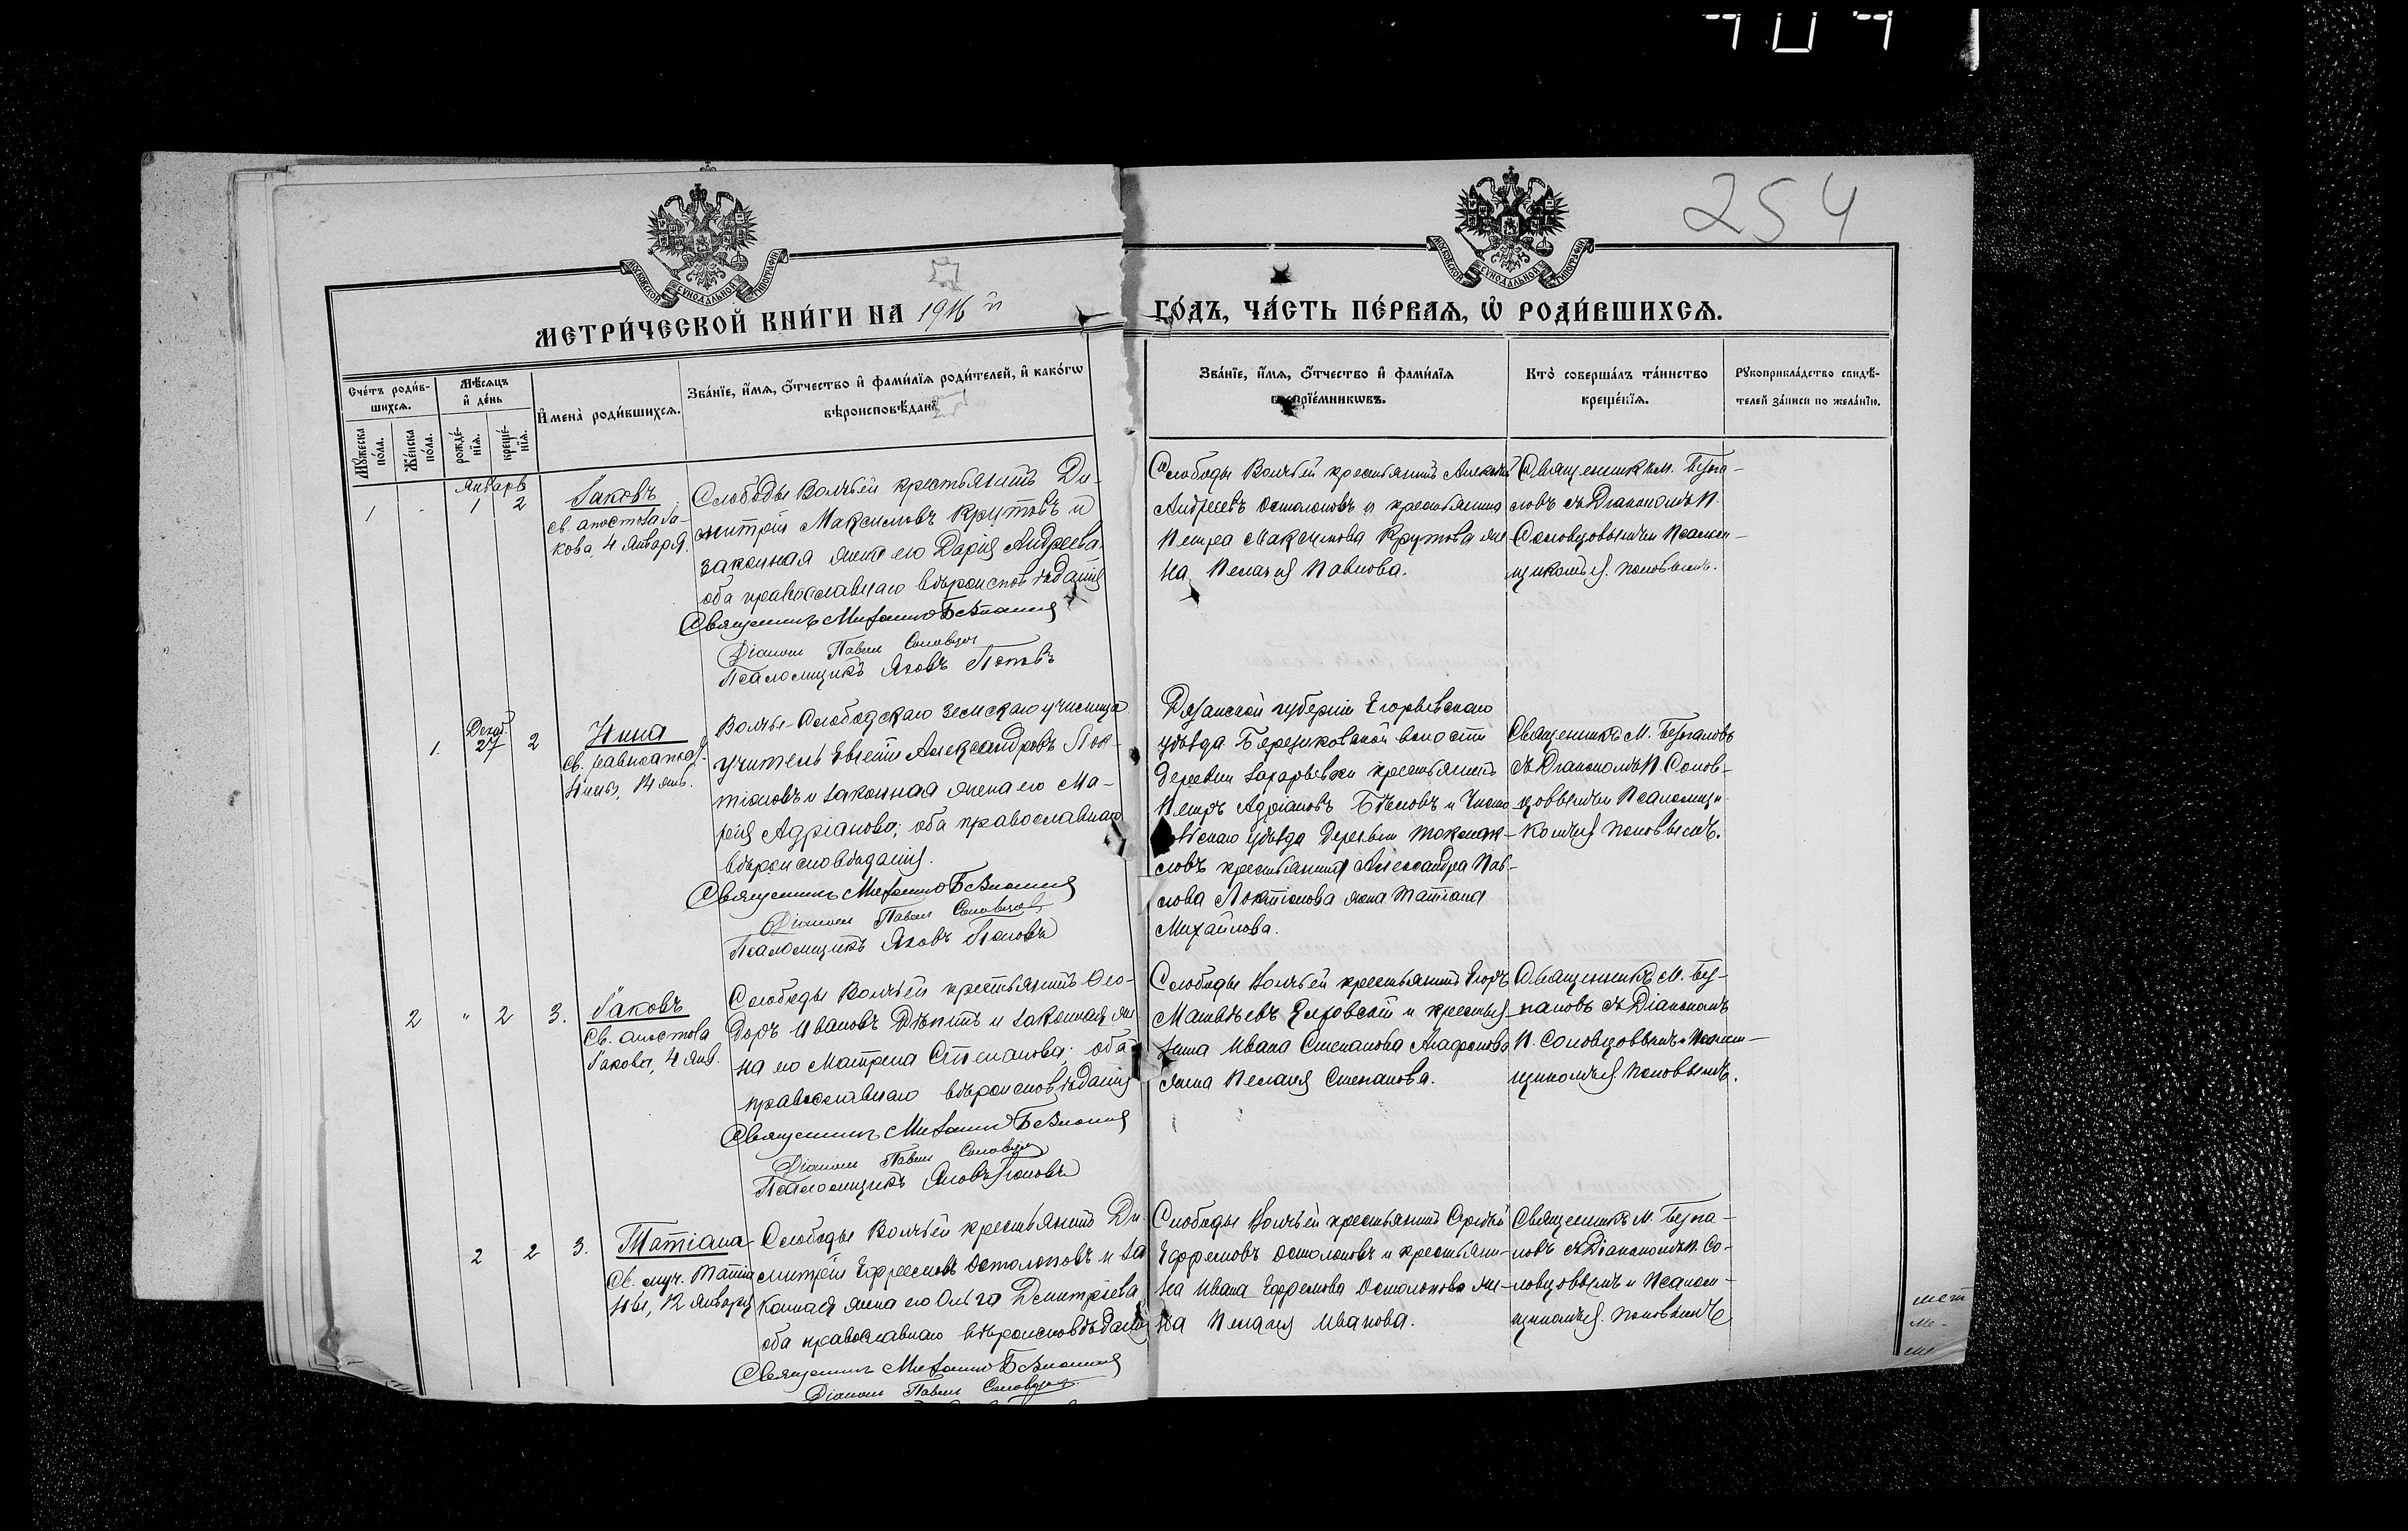 254
МОСКОВСКОЙ СѴНОДАЛЬНОЙ ТИПОГРАФІИ
МОСКОВСКОЙ СѴНОДАЛЬНОЙ ТИПОГРАФІИ
МЕТРИ́ЧЕСКОЙ КНИ́ГИ НА 1916 й
ГО́ДЪ, ЧА́СТЬ ПЕ́РВАѦ, Ѡ҆ РОДИ́ВШИХСѦ.
Сче́тъ роди́в-
шихсѧ.
Мꙋ́жеска по́ла.
Же́нска по́ла.
Мѣ́сѧцъ и҆ де́нь
рожде́-
нїѧ.
креще́-
нїѧ.
И҆мена̀ роди́вшихсѧ.
Зва́нїе, и҆́мѧ, ѻ҆́тчество и҆ фами́лїѧ роди́телей, и҆ како́гѡ
вѣроисповѣ́данїѧ
Зва́нїе, и҆́мѧ, ѻ҆́тчество и҆ фами́лїѧ
воспрїе́мникѡвъ.
Кто̀ соверша́лъ та́инство
креще́нїѧ.
Рꙋкоприкла́дство свидѣ́-
телей за́писи по жела́нїю.
Январь
1 - 1 2
Іаковъ
св. апостола Іа-
кова, 4 Января.
Слободы Волчьей крестьянинъ Ди-
митрій Максимовъ Крутовъ и
законная жена его Дарія Андреева.
оба православнаго вѣроисповѣданія
Священникъ Михаилъ
Діаконъ Павелъ Соловцовъ
Псаломщикъ Яковъ Поповъ
Слободы Волчьей крестьянинъ
Андреевъ Остолоповъ и крестьянина
Петра Максимова Крутова же-
на Пелагія Павлова.
Священникъ М.
съ Діакономъ П.
Соловцовымъ и Псалом-
щикомъ Я. Поповымъ.
1. Декаб. 27 2
Нина
св. равноапос.
Нины, 14 янв.
Волчье-Слободскаго земскаго училища
учитель Евгеній Александровъ Лок-
тіоновъ и законная жена его Ма-
рія Адріанова; оба православнаго
вѣроисповѣданія.
Священникъ Михаилъ
Діаконъ Павелъ Соловцовъ
Псаломщикъ Яковъ Поповъ
Рязанской губерніи Егорьевскаго
уѣзда волости
деревни крестьянинъ
Петръ Адріановъ Бѣловъ и
уѣзда деревни
крестьянина Александра Пав-
лова Локтіонова жена Татіана
Михайлова.
Священникъ М.
съ Діакономъ П. Солов-
цовымъ и Псаломщи-
комъ Я. Поповымъ.
2 " 2 3.
Іаковъ
Св. апостола
Іакова, 4 янв.
Слободы Волчьей крестьянинъ Ѳео-
доръ Ивановъ и законная же
на его Матрена Степанова; оба
православнаго вѣроисповѣданія
Священникъ Михаилъ
Діаконъ Павелъ Соловцовъ
Псаломщикъ Яковъ Поповъ
Слободы Волчьей крестьянинъ Егоръ
Матвѣевъ и крестья-
нина Ивана Степанова Агафонова
жена Пелагія Степанова.
Священникъ М.
съ Діакономъ
П. Соловцовымъ и Псалом-
щикомъ Я. Поповымъ.
2 2 3.
Татіана
Св. муч. Татіа
ны, 12 января
Слободы Волчьей крестьянинъ Ди-
митрій Ефремовъ Остолоповъ и за
конная жена его Ольга Димитріева,
оба православнаго вѣроисповѣданія
Священникъ Михаилъ
Діаконъ Павелъ Соловцовъ
Слободы Волчьей крестьянинъ Сергѣй
Ефремовъ Остолоповъ и крестьяни-
на Ивана Ефремова Остолопова же-
на Пелагія Иванова.
Священникъ М.
съ Діакономъ П. Со-
ловцовымъ и Псалом-
щикомъ Я. Поповымъ